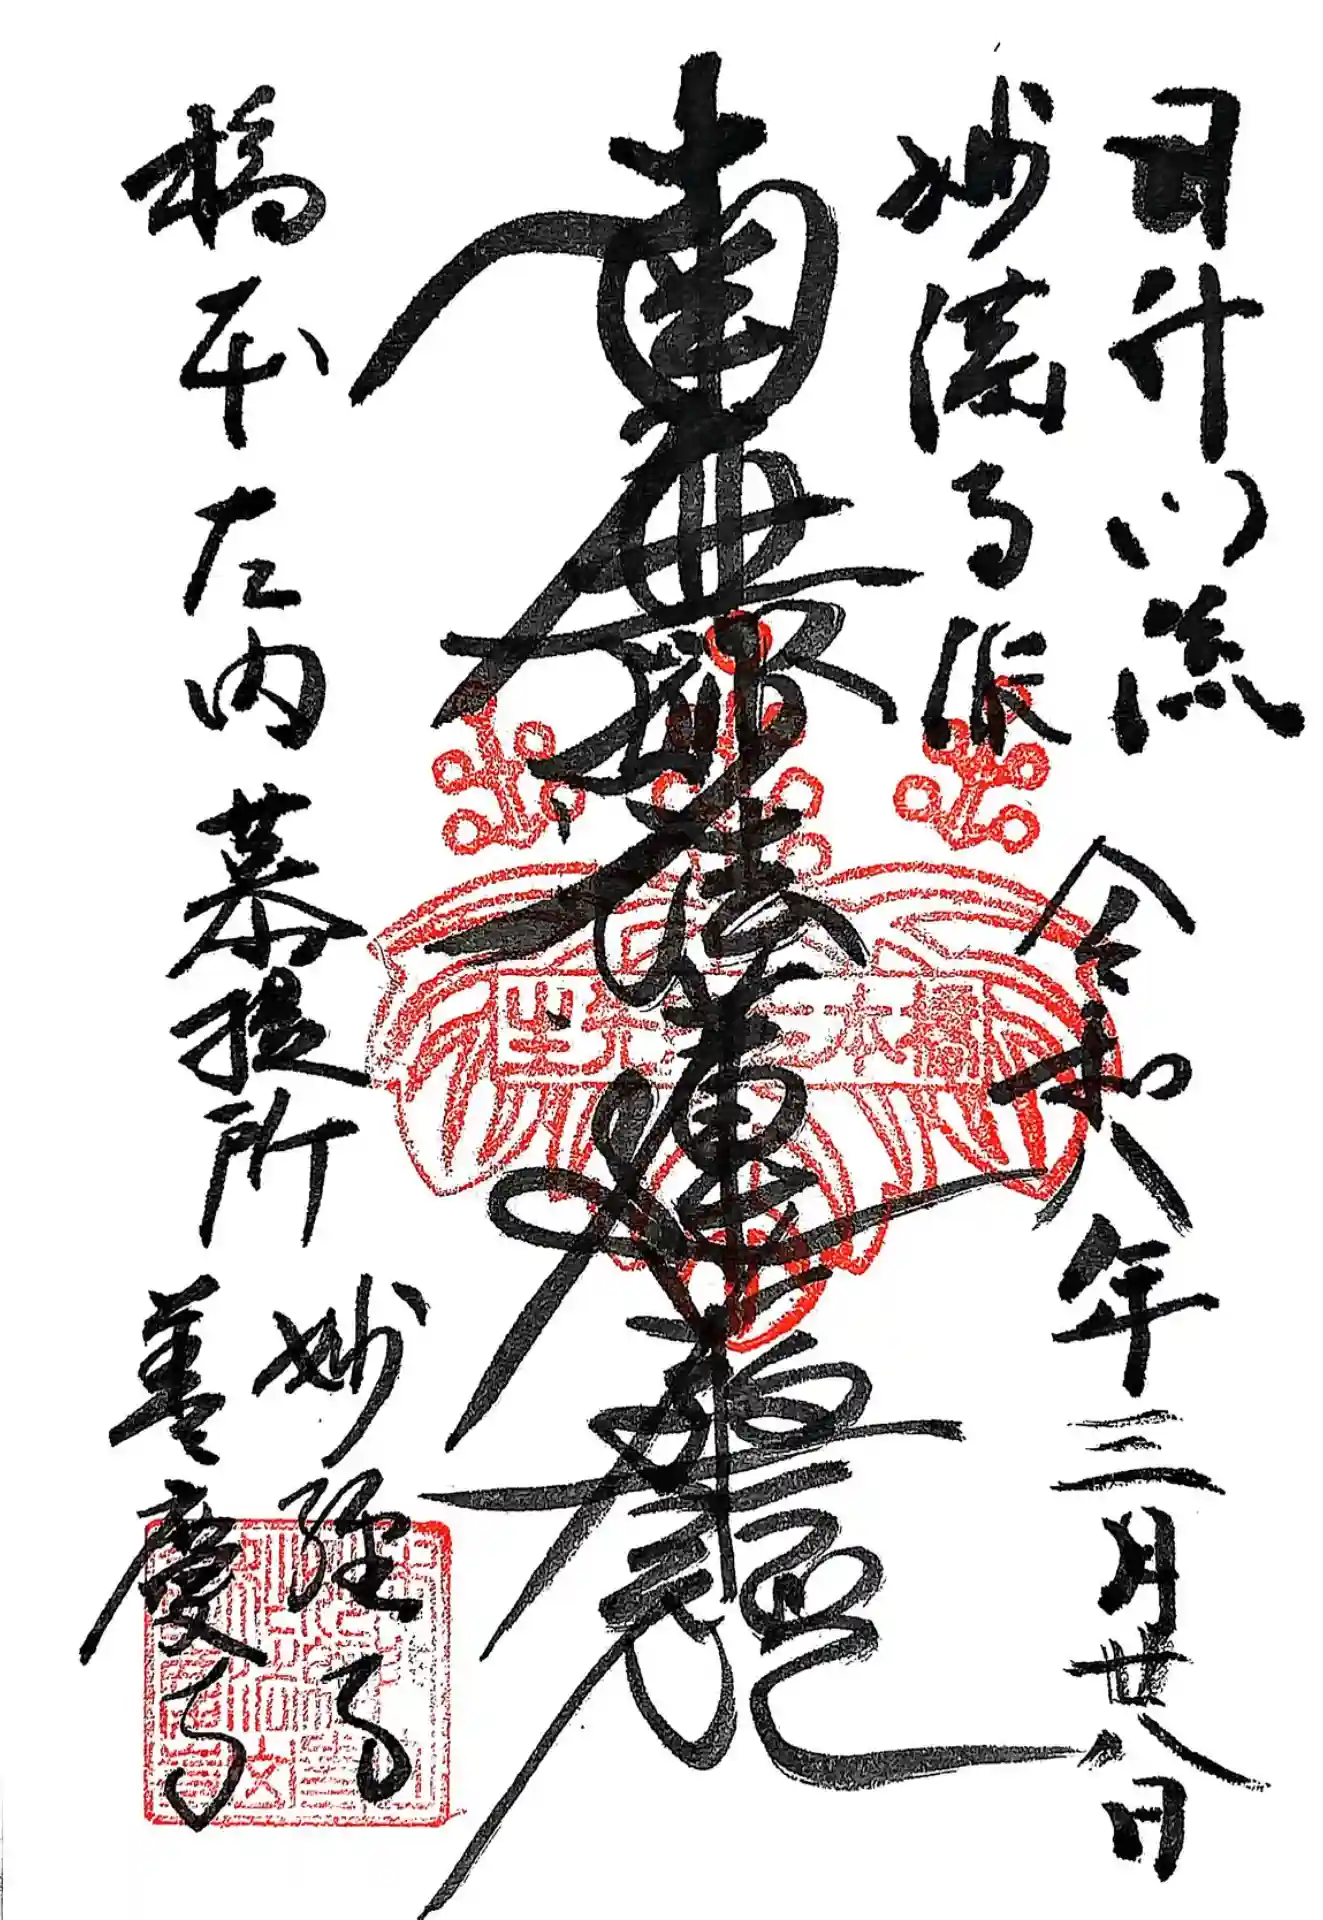 日什門流
妙満寺派
令和八年三月廿八日
南無妙法蓮華経
橋本左内先生
橋本左内菩提所
妙経寺
善慶寺